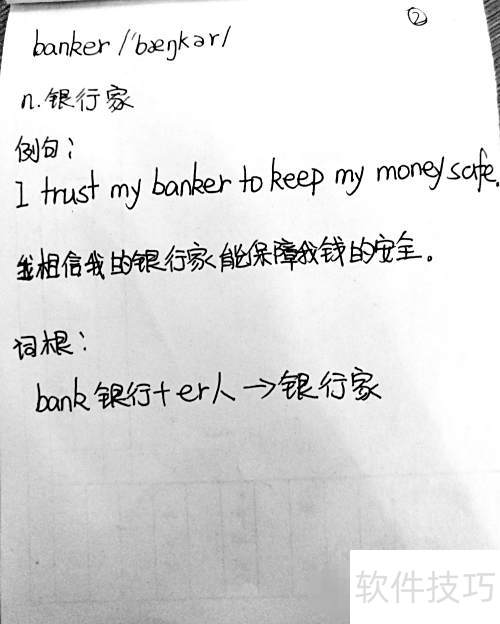 ②
banker /'bæŋkər/
n.银行家
例句：
I trust my banker to keep my money safe.
我相信我的银行家能保障我钱的安全。
词根：
bank 银行+er人→银行家
软件技巧